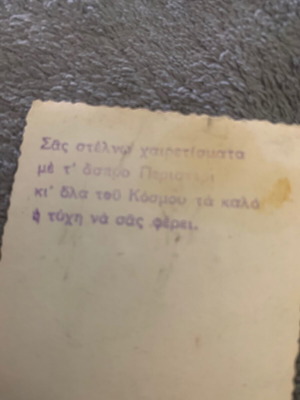 Σᾶς στέλνω χαιρετίσματα
μέ τ' ἄσπρο
κι' ὅλα τοῦ Κόσμου τά καλά
ἡ τύχη νά σᾶς φέρει.